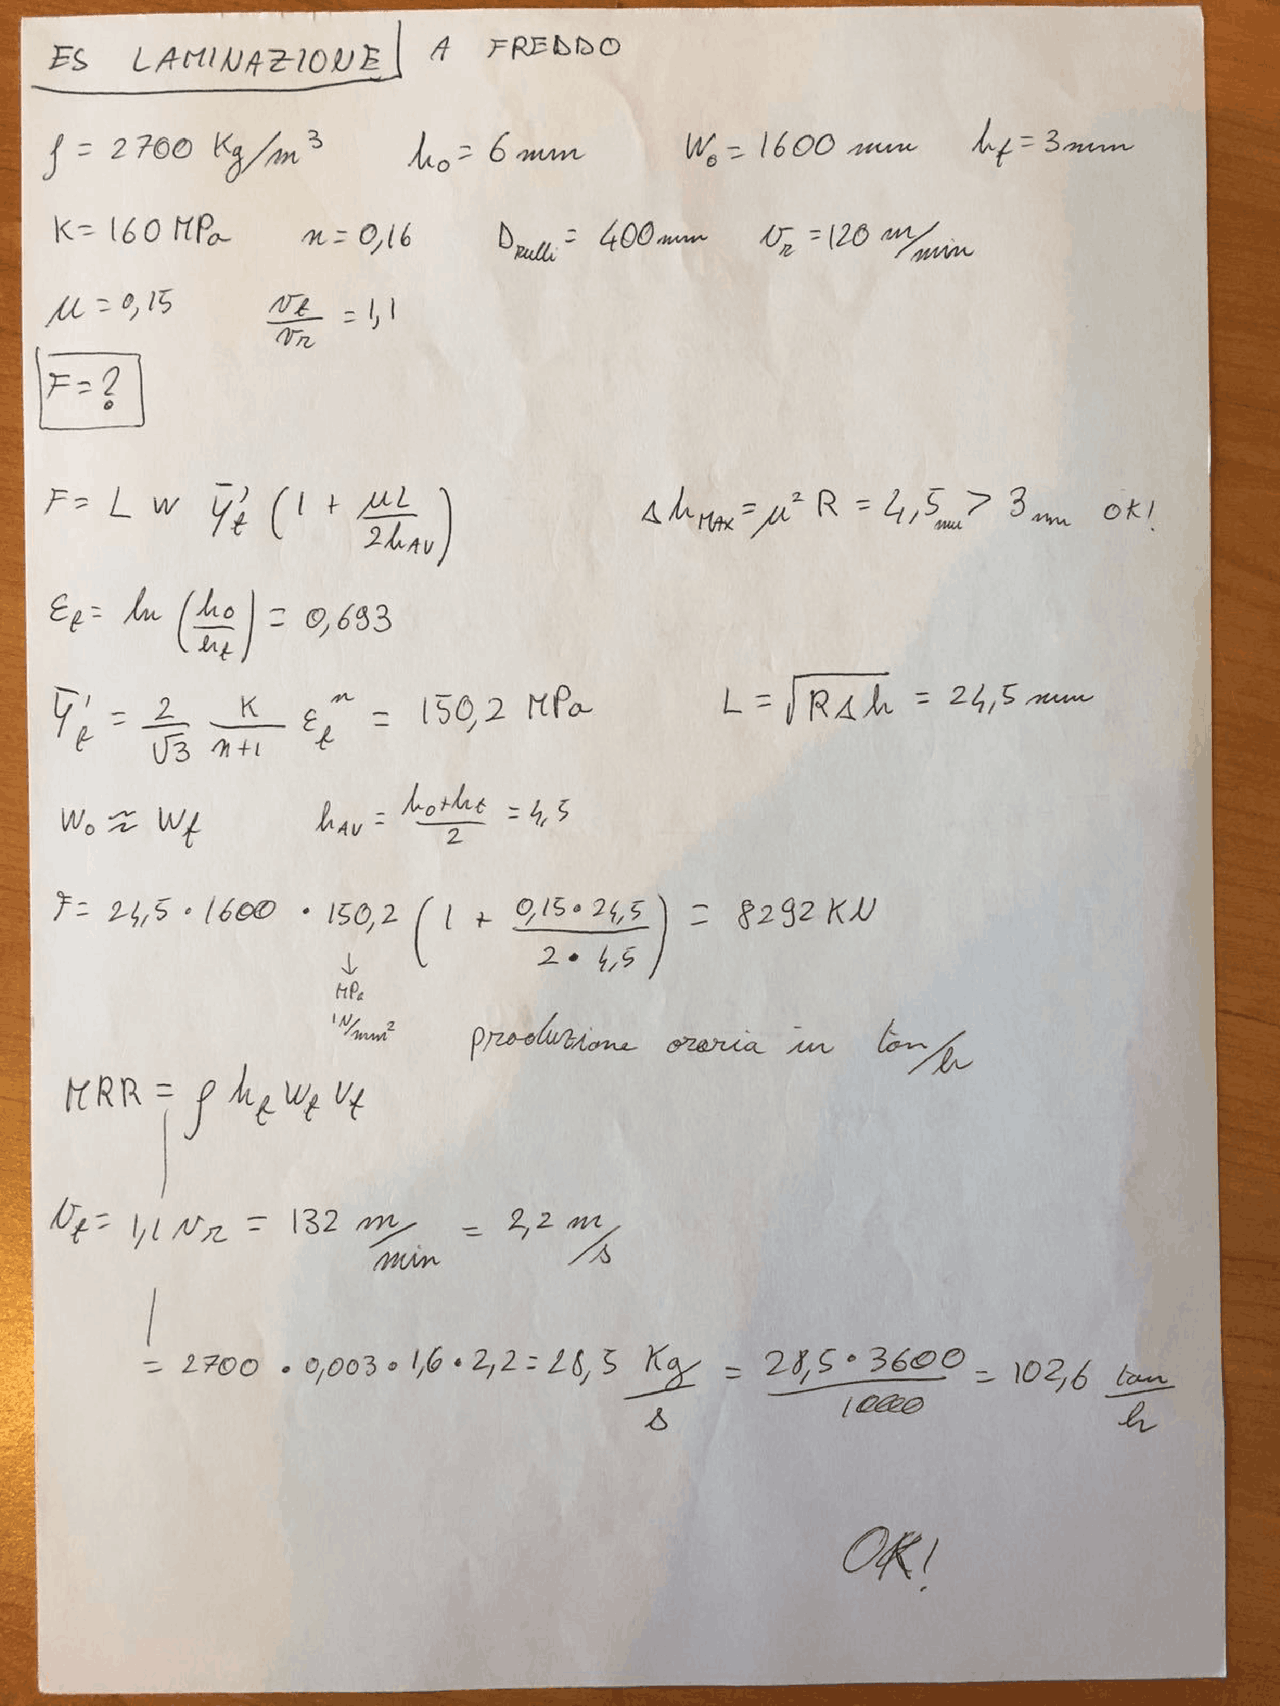 ES LAMINAZIONE A FREDDO
ρ = 2700 Kg/m³ h₀ = 6 mm W₀ = 1600 mm h_f = 3 mm
K = 160 MPa n = 0,16 D_Rulli = 400 mm v_r = 120 m/min
μ = 0,15 v_f/v_r = 1,1
F = ?
F = L W Ȳ'_f (1 + μL/2h_AV) Δh_MAX = μ² R = 4,5 mm > 3 mm OK!
ε_f = ln (h₀/h_f) = 0,693
Ȳ'_f = 2/√3 K/n+1 ε_f^n = 150,2 MPa L = √RΔh = 24,5 mm
W₀ ≈ W_f h_AV = h₀+h_f/2 = 4,5
F = 24,5 · 1600 · 150,2 (1 + 0,15 · 24,5/2 · 4,5) = 8292 KN
↓
MPa
N/mm²
produzione oraria in ton/h
MRR = ρ h_f W_f V_f
v_f = 1,1 v_r = 132 m/min = 2,2 m/s
= 2700 · 0,003 · 1,6 · 2,2 = 28,5 Kg/s = 28,5 · 3600/1000 = 102,6 ton/h
OK!